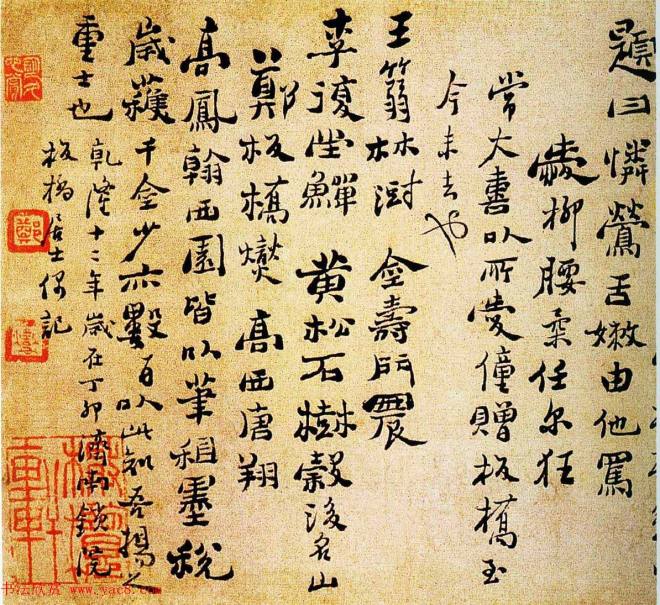 題曰憐鶯舌嫩由他罵
愛柳腰柔任尔狂
常大喜以所愛僮贈板橋至
今未去也
王篛林澍 金壽門農
李復堂鱓 黄松石樹榖後名山
鄭板橋燮 高西唐翔
高鳳翰西園皆以筆租墨税
歲獲千金少亦數百以此知吾揚之
重士也 乾隆十二年歲在丁卯濟南鎖院
板橋居士偶記
书法欣赏 www.yac8.com